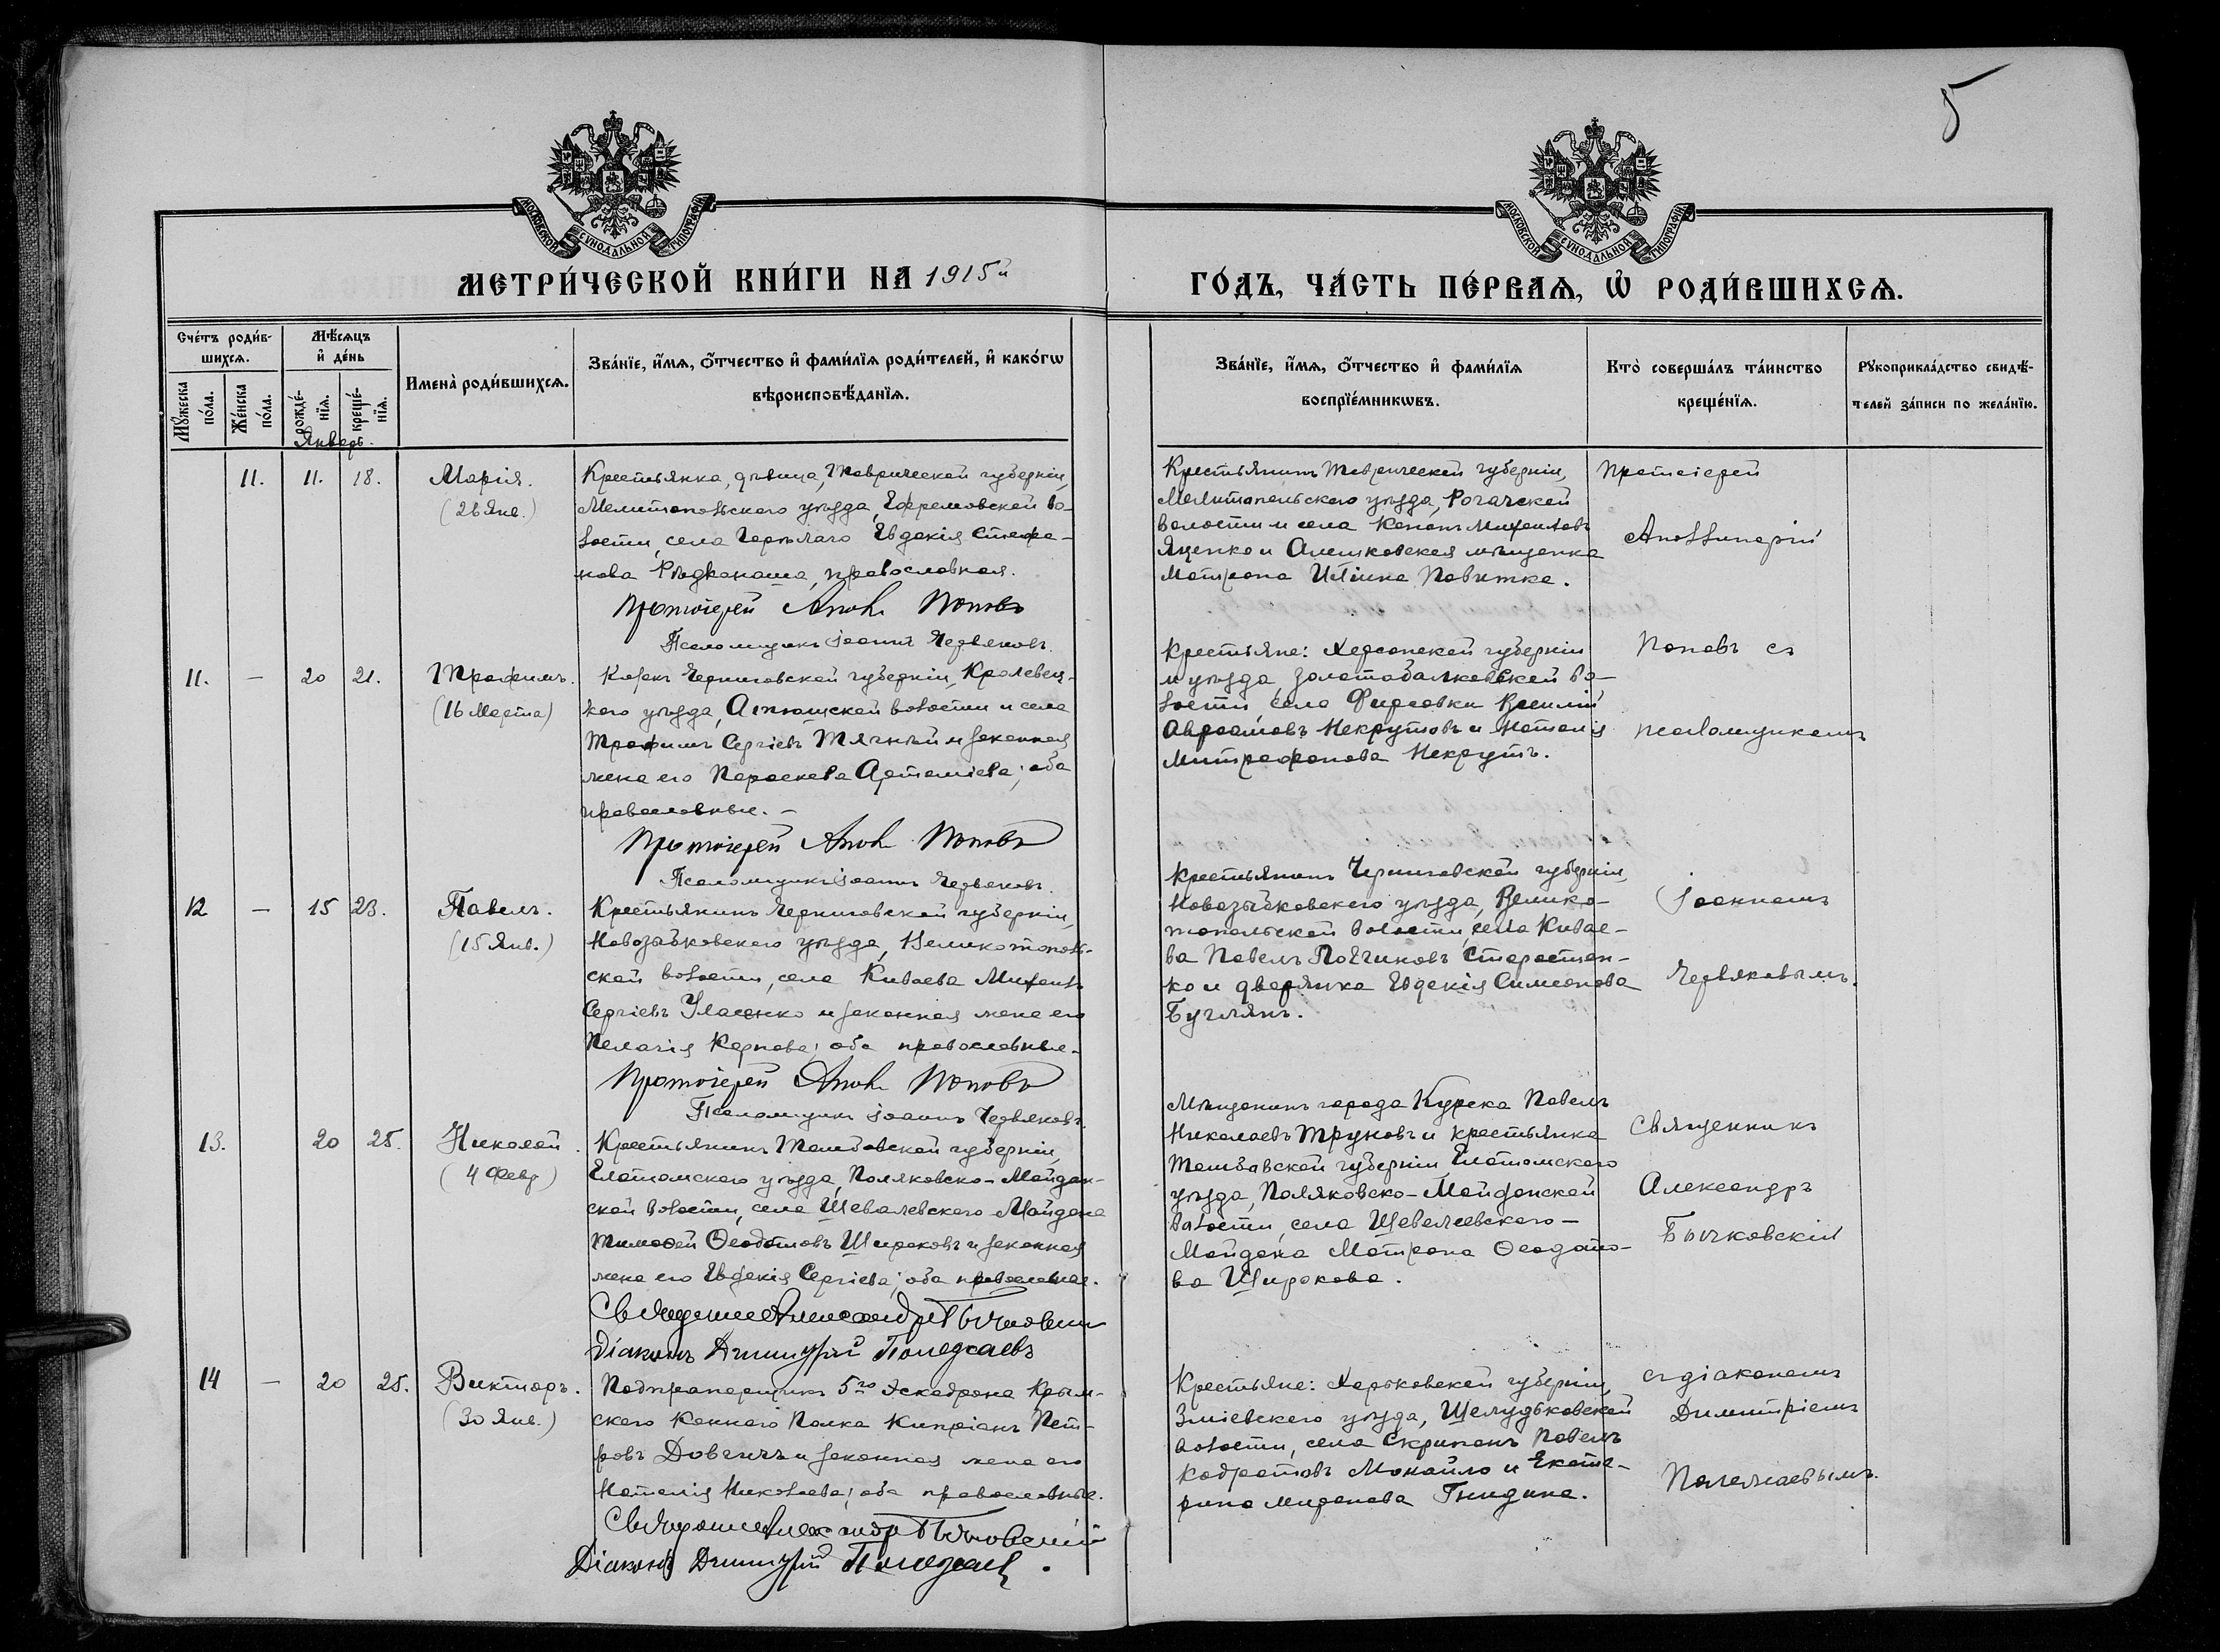 5
МОСКОВСКОЙ СѴНОДАЛЬНОЙ ТИПОГРАФІИ
МОСКОВСКОЙ СѴНОДАЛЬНОЙ ТИПОГРАФІИ
МЕТРИ́ЧЕСКОЙ КНИ́ГИ НА 1915й
ГО́ДЪ, ЧА́СТЬ ПЕ́РВАѦ, Ѡ҆ РОДИ́ВШИХСѦ.
Сче́тъ роди́в-
шихсѧ.
Мѣ́сѧцъ
и҆ де́нь
Мꙋ́жеска
по́ла.
Же́нска
по́ла.
рожде́-
нїѧ.
креще́-
нїѧ.
Имена̀ роди́вшихсѧ.
Зва́нїе, и҆́мѧ, ѻ҆́тчество и҆ фами́лїѧ роди́телей, и҆ како́гѡ
вѣроисповѣ́данїѧ.
Зва́нїе, и҆́мѧ, ѻ҆́тчество и҆ фами́лїѧ
воспрїе́мникѡвъ.
Кто̀ соверша́лъ та́инство
креще́нїѧ.
Рꙋкоприкла́дство свидѣ́-
телей за́писи по жела́нїю.
Январь.
11. 11. 18. Марія.
(26 Янв.)
Крестьянка, дѣвица, Таврической губерніи,
Мелитопольскаго уѣзда, Ефремовской во-
лости, села Черняго Евдокія Стефа-
нова, православная.
Протоіерей Апол. Поповъ
Псаломщикъ Іоаннъ Червяковъ.
Крестьянинъ Таврической губерніи,
Мелитопольскаго уѣзда, Рогачской
волости и села Кононъ Михаиловъ
Яценко и Алешковская мѣщанка
Матрона Иліина Повитка.
Протоіерей
Аполлинарій
11. — 20 21. Трофимъ.
(16 Марта)
Казакъ Черниговской губерніи, Кролевец-
каго уѣзда, волости и села
Трофимъ Сергіевъ Тягный и законная
жена его Параскева Артеміева; оба
православные. —
Протоіерей Апол. Поповъ
Псаломщикъ Іоаннъ Червяковъ.
Крестьяне: Херсонской губерніи
и уѣзда, Золотобалковской во-
лости села Фирсовки Василій
Авраамовъ Некрутовъ и Наталія
Митрофанова Некрутъ.
Поповъ съ
псаломщикомъ
12 — 15 23. Павелъ.
(15 Янв.)
Крестьянинъ Черниговской губерніи,
Новозыбковскаго уѣзда, Великотополь-
ской волости, села Киваева Михаилъ
Сергіевъ Уласенко и законная жена его
Пелагія Карпова; оба православные.
Протоіерей Апол. Поповъ
Псаломщикъ Іоаннъ Червяковъ.
Крестьянинъ Черниговской губерніи,
Новозыбковскаго уѣзда, Велико-
топольской волости, села Кивае-
ва Павелъ Логгиновъ Старостен-
ко и дворянка Евдокія Симеонова
Буглянъ.
Іоанномъ
Червяковымъ.
13. 20 25. Николай.
(4 Февр.)
Крестьянинъ Тамбовской губерніи,
Елатомскаго уѣзда, Поляковско-Майдан-
ской волости, села Шевалевскаго Майдана
Тимоѳей Ѳеодотовъ Широковъ и законная
жена его Евдокія Сергіева; оба православные.
Священникъ Александръ Бычковскій
Діаконъ Димитрій Полежаевъ
Мѣщанинъ города Курска Павелъ
Николаевъ Труновъ и крестьянка
Тамбовской губерніи Елатомскаго
уѣзда, Поляковско-Майданской
волости, села Шевалеевскаго-
Майдана Матрона Ѳеодото-
ва Широкова.
Священникъ
Александръ
Бычковскій
14 — 20 25. Викторъ.
(30 Янв.)
Подпрапорщикъ 5го эскадрона Крым-
скаго Коннаго Полка Кипріанъ Пет-
ровъ Довгичъ и законная жена его
Наталія Николаева; оба православные.
Священникъ Александръ Бычковскій
Діаконъ Димитрій Полежаевъ.
Крестьяне: Харьковской губерніи,
Зміевскаго уѣзда, Шелудьковской
волости, села Скрипаи Павелъ
Кодратовъ Монайло и Екате-
рина Миронова Гнидина.
съ діакономъ
Димитріемъ
Полежаевымъ.